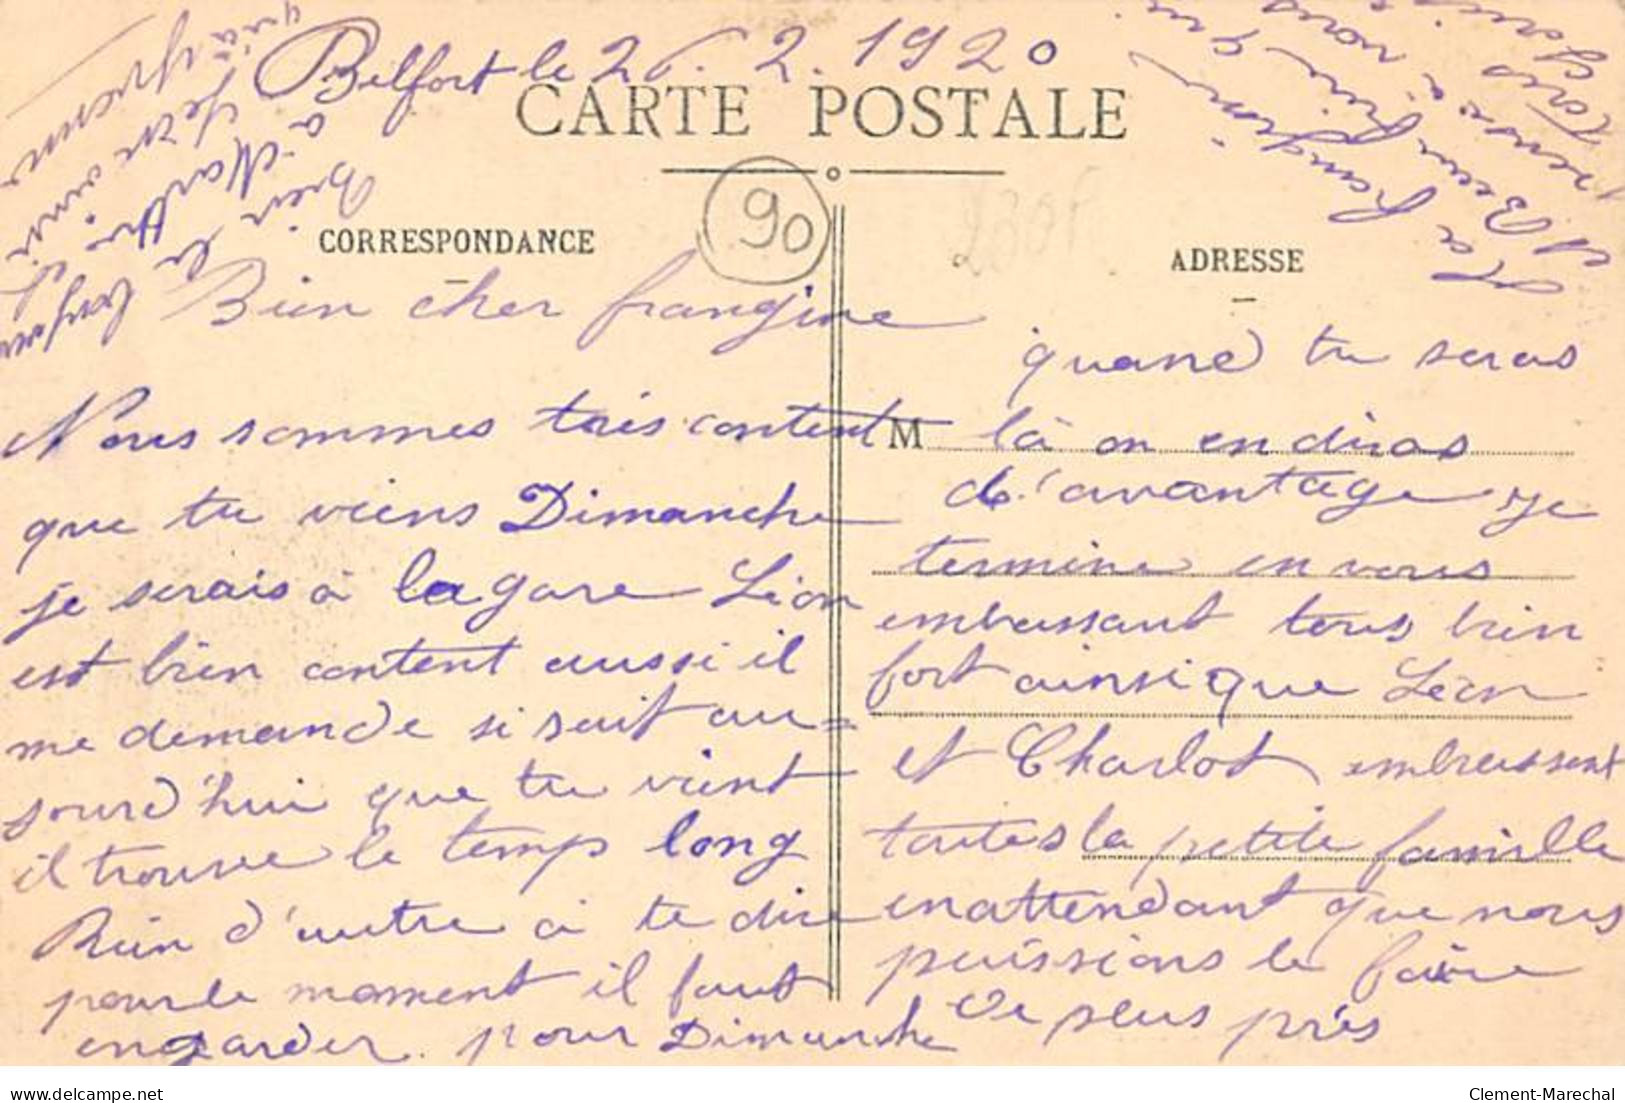 Belfort le 26.2.1920
CARTE POSTALE
90
CORRESPONDANCE
ADRESSE
Bien cher frangine
Nous sommes trés content
que tu viens Dimanche
je serais à la gare Léon
est bien content aussi il
me demande si sait au=
jourd'hui que tu vient
il trouve le temps long
Rien d'autre à te dire
pour le moment il faut
en garder pour Dimanche
quand tu seras
M
là on en diras
d'avantage je
termine en vous
embrassant tous bien
fort ainsi que Léon
et Charlot embrassent
toutes la petite famille
en attendant que nous
puissions le faire
de plus près
Ta frangine
et Beau frère qui
pense à vous
tous
Bien le
à Marthe et
delcampe.net
Clement-Marechal